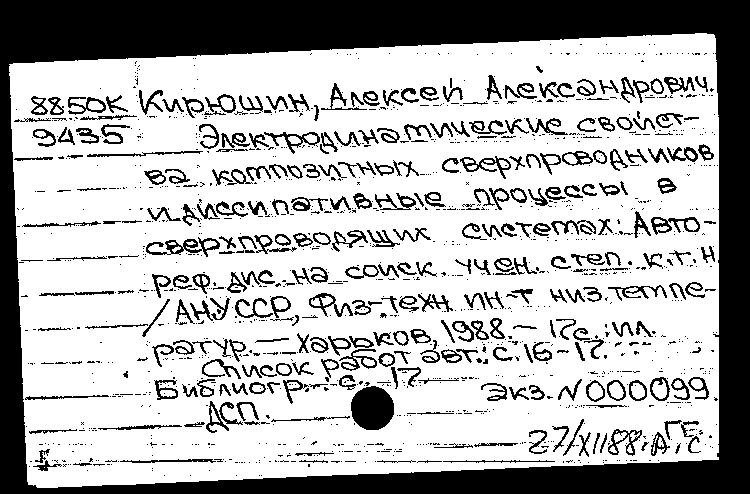 8850к Кирюшин, Алексей Александрович.
9435 Электродинамические свойст-
ва композитных сверхпроводников
и диссипативные процессы в
сверхпроводящих системах: Авто-
реф. дис. на соиск. учен. степ. к.т.н.
/АН УССР, Физ-техн. ин-т низ. темпе-
ратур. — Харьков, 1988. — 17с.: ил.
Список работ авт.: с. 16-17.
Библиогр.: с. 17.
экз. N000099.
ДСП.
27/XII88.